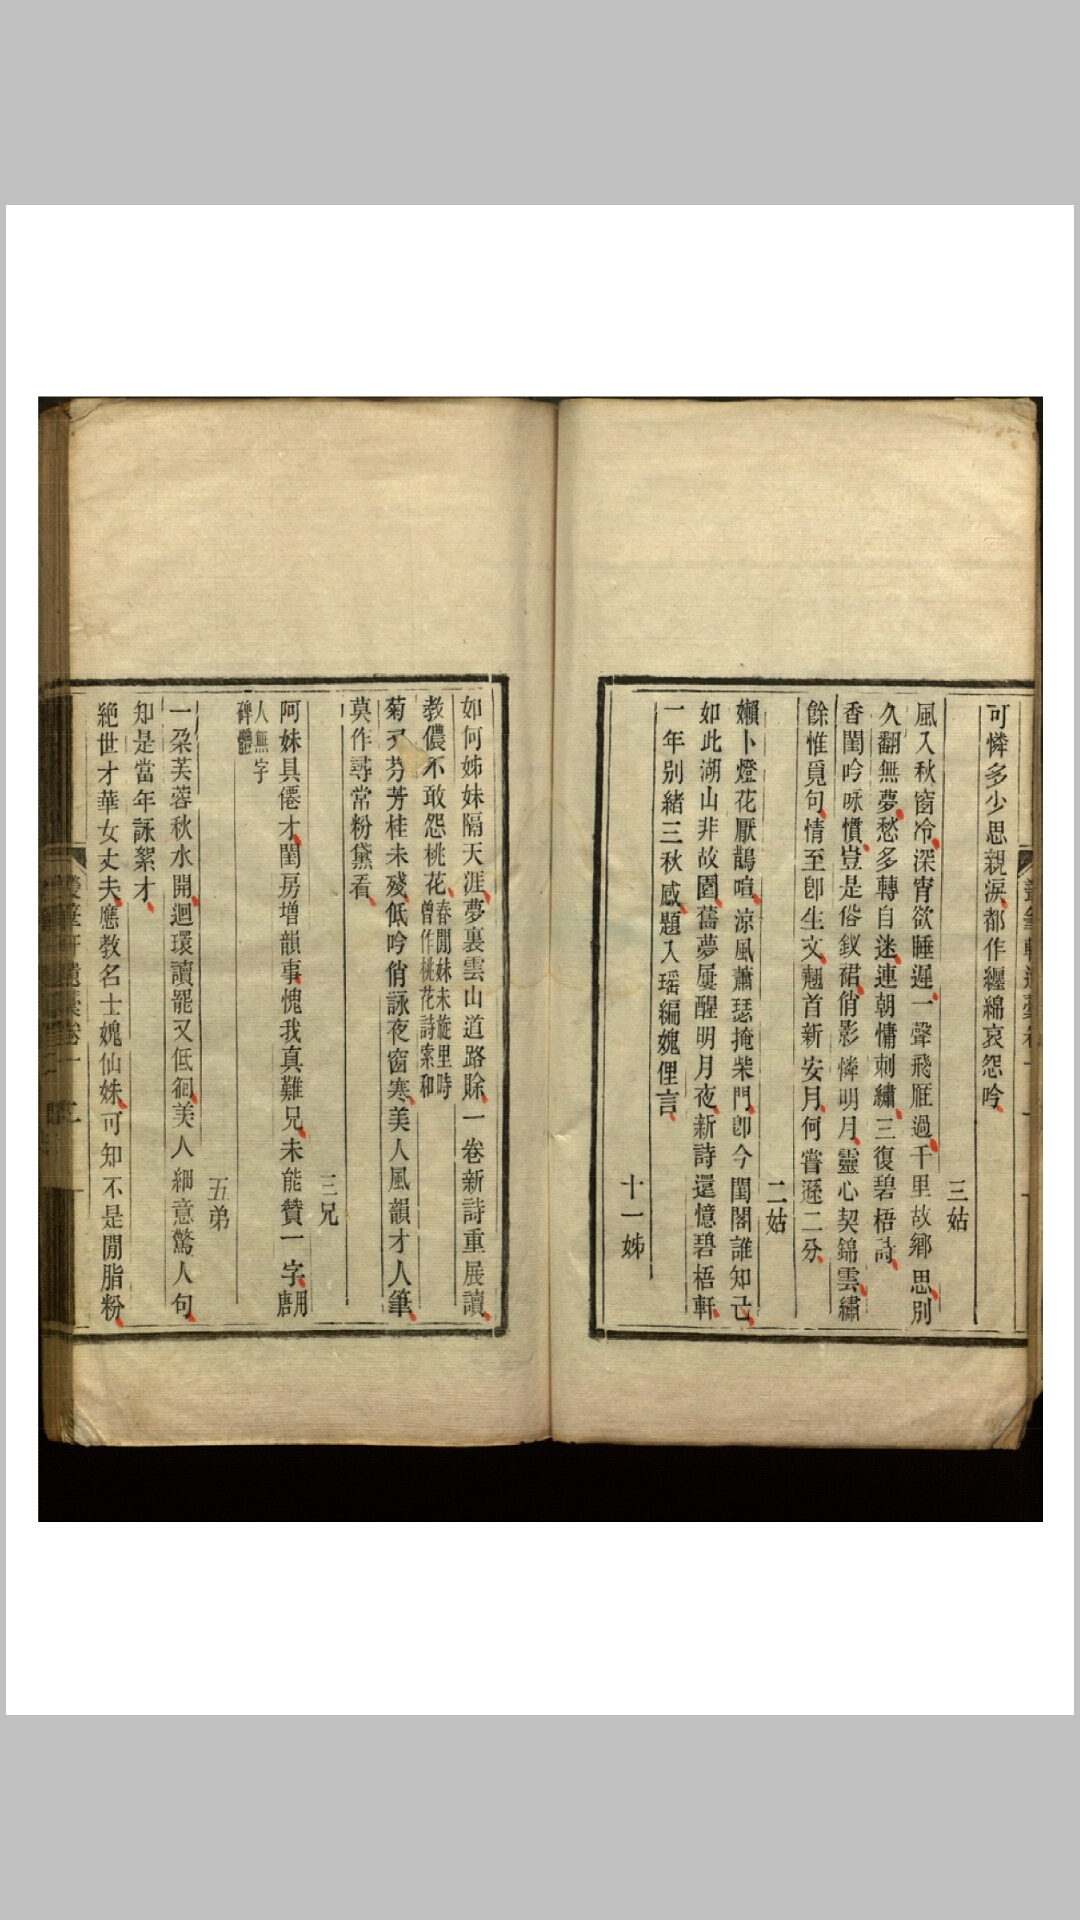 可憐多少思親淚都作纏綿哀怨吟
三姑
風入秋窗冷深宵欲睡遲一聲飛雁過千里故鄉思別
久翻無夢愁多轉自迷連朝慵刺繡三復碧梧詩
香閨吟咏慣豈是俗釵裙俏影憐明月靈心契錦雲繡
餘惟覓句情至卽生文翹首新安月何嘗遜二分
二姑
嬾卜燈花厭鵲喧涼風蕭瑟掩柴門卽今閨閣誰知己
如此湖山非故園舊夢屢醒明月夜新詩還憶碧梧軒
一年别緒三秋感題入瑶編媿俚言
十一姊
如何姊妹隔天涯夢裏雲山道路賒一卷新詩重展讀
教儂不敢怨桃花春閒妹未旋里時曾作桃花詩索和
菊芬芳桂未殘低吟俏詠夜窗寒美人風韻才人筆
莫作尋常粉黛看
三兄
阿妹具僊才閨房增韻事愧我真難兄未能贊一字用唐
人無字碑體
五弟
一朶芙蓉秋水開迴環讀罷又低徊美人細意驚人句
知是當年詠絮才
絶世才華女丈夫應教名士媿仙姝可知不是閒脂粉